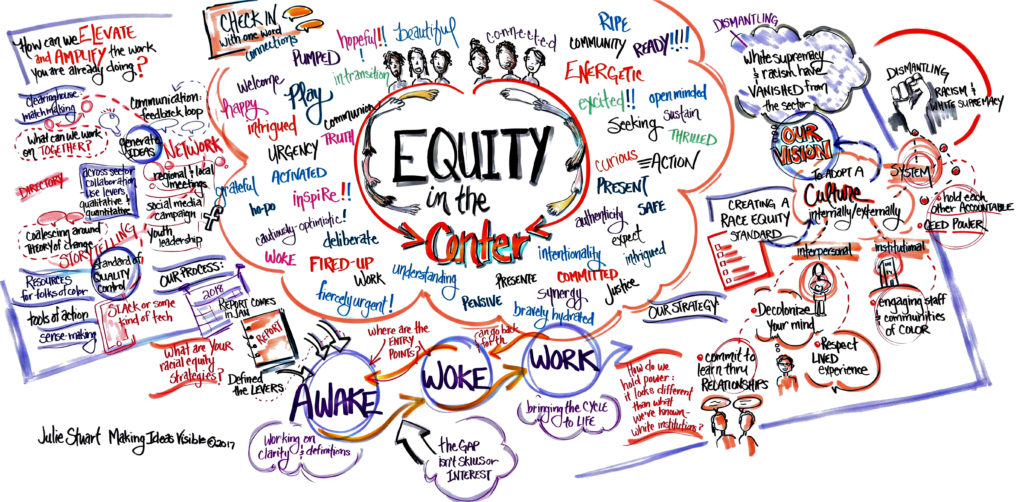 How can we ELEVATE
and AMPLIFY the work
you are already doing?
clearinghouse
matchmaking
What can we work
on TOGETHER?
Communication:
feedback loop
generate
IDEAS
NETWORK
DIRECTORY
across sector
collaboration
use levers
qualitative &
quantitative
regional & local
meetings
social media
campaign
youth
leadership
Coalescing around
THEORY of change
STORYTELLING
standard of
QUALITY
control
RESOURCES
for folks of color
tools of action
sense-making
SLACK or some
kind of tech
OUR PROCESS:
2018
REPORT COMES
in JAN
REPORT
What are YOUR
racial equity
strategies?
Defined
the LEVERS
Julie Stuart Making Ideas Visible ©2017
CHECK IN
with one word
connections
PUMPED
hopeful!!
beautiful
connected
RIPE
COMMUNITY
READY!!!!
welcome
in transition
ENERGETIC
happy
Play
communion
excited!!
open minded
sustain
intrigued
TRUTH
Seeking
THRILLED
URGENCY
curious
=ACTION
grateful
ACTIVATED
PRESENT
ho-po
inspire!!
authenticity
SAFE
cautiously optimistic!
expect
deliberate
intentionality
intrigued
WOKE
FIRED-UP
WORK
understanding
PRESENTE
COMMITTED
synergy
Justice
fiercely urgent!
PENSIVE
bravely hydrated
EQUITY
in the
Center
AWAKE
WOKE
WORK
Where are the
ENTRY
POINTS?
can go back
forth
Working on
clarity & definitions
the GAP
isn't SKILLS or
INTEREST
bringing the CYCLE
to LIFE
How do we
hold power:
it looks different
than what
we've known-
white institutions?
DISMANTLING
White supremacy
& racism have
VANISHED from
the sector
DISMANTLING
RACISM &
WHITE SUPREMACY
OUR
VISION
TO ADOPT A
Culture
internally/externally
SYSTEM
hold each
other ACCOUNTABLE
CEED POWER
CREATING A
RACE EQUITY
STANDARD
interpersonal
institutional
OUR STRATEGY
Decolonize
your mind
engaging staff
& communities
of COLOR
Respect
LIVED
experience
commit to
learn thru
RELATIONSHIPS